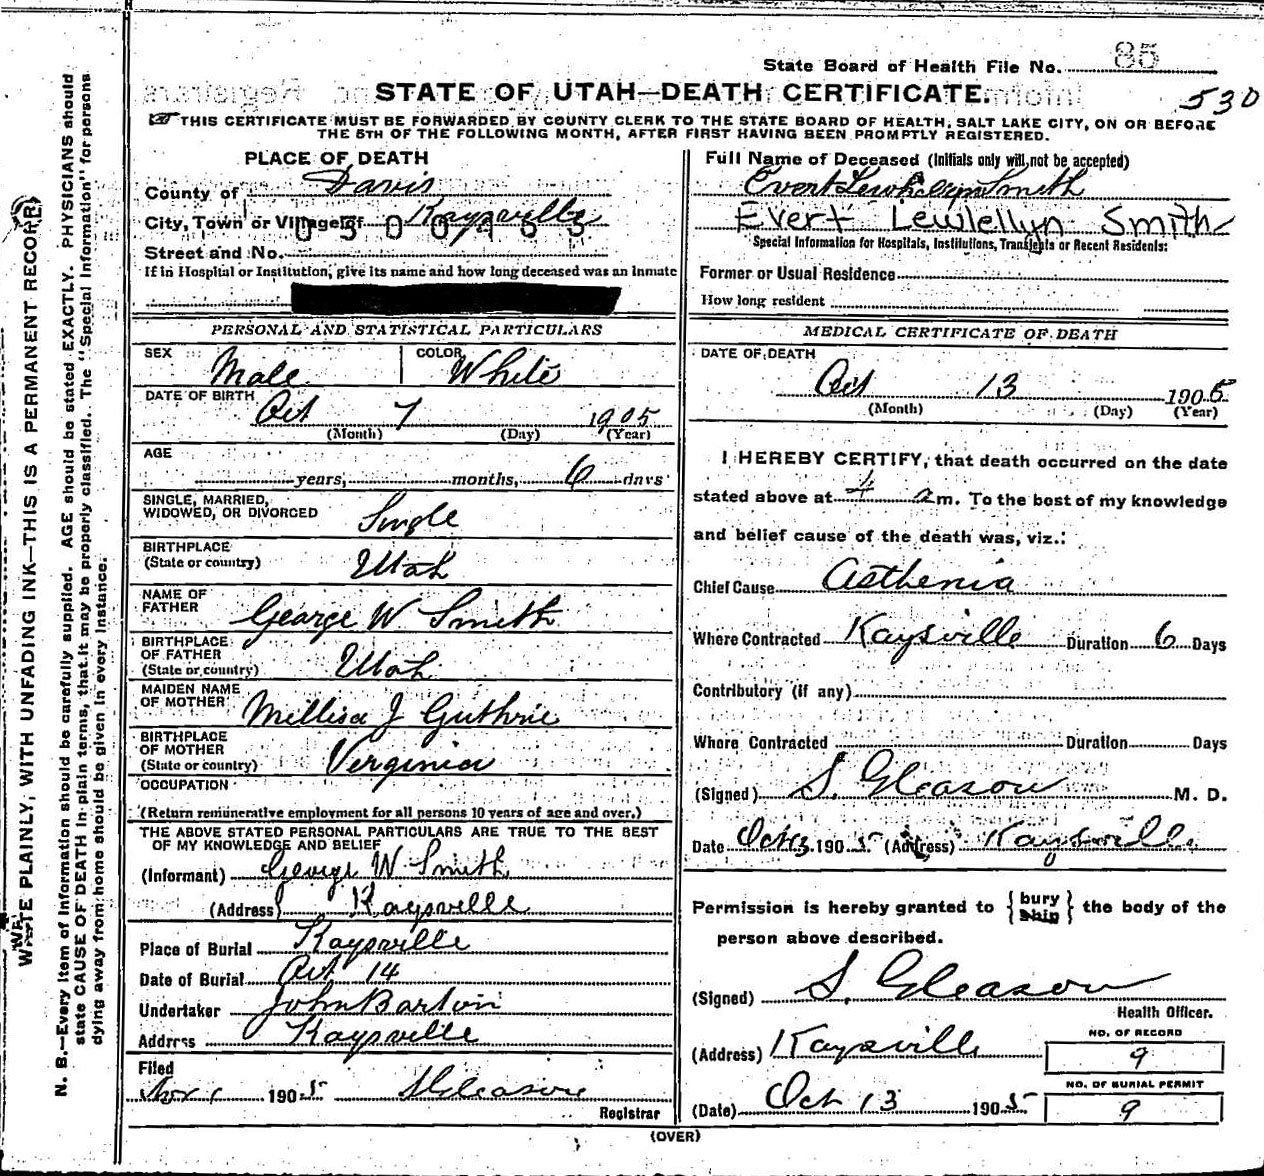 State Board of Health File No. 85
STATE OF UTAH—DEATH CERTIFICATE.
530
THIS CERTIFICATE MUST BE FORWARDED BY COUNTY CLERK TO THE STATE BOARD OF HEALTH, SALT LAKE CITY, ON OR BEFORE
THE 5TH OF THE FOLLOWING MONTH, AFTER FIRST HAVING BEEN PROMPTLY REGISTERED.
PLACE OF DEATH
County of Davis
City, Town or Village of Kaysville
Street and No.
If in Hospital or Institution, give its name and how long deceased was an inmate
Full Name of Deceased (Initials only will not be accepted)
Evert Lewhelyn Smith
Evert Lewlellyn Smith
Special Information for Hospitals, Institutions, Transients or Recent Residents:
Former or Usual Residence
How long resident
PERSONAL AND STATISTICAL PARTICULARS
SEX Male
COLOR White
DATE OF BIRTH Oct 7 1905
(Month) (Day) (Year)
AGE
years, months, 6 days
SINGLE, MARRIED,
WIDOWED, OR DIVORCED Single
BIRTHPLACE
(State or country) Utah
NAME OF
FATHER George W Smith
BIRTHPLACE
OF FATHER
(State or country) Utah
MAIDEN NAME
OF MOTHER Millisa J Guthrie
BIRTHPLACE
OF MOTHER
(State or country) Verginia
OCCUPATION
(Return remunerative employment for all persons 10 years of age and over.)
THE ABOVE STATED PERSONAL PARTICULARS ARE TRUE TO THE BEST
OF MY KNOWLEDGE AND BELIEF
(Informant) George W Smith
(Address) Kaysville
Place of Burial Kaysville
Date of Burial Oct 14
Undertaker John Barton
Address Kaysville
Filed
Nov 1 1905 S Gleason
Registrar
MEDICAL CERTIFICATE OF DEATH
DATE OF DEATH
Oct 13 1905
(Month) (Day) (Year)
I HEREBY CERTIFY, that death occurred on the date
stated above at 4 a m. To the best of my knowledge
and belief cause of the death was, viz.:
Chief Cause Asthenia
Where Contracted Kaysville Duration 6 Days
Contributory (if any)
Where Contracted Duration Days
(Signed) S. Gleason M. D.
Date Oct 13 1905 (Address) Kaysville
Permission is hereby granted to {bury ship} the body of the
person above described.
(Signed) S. Gleason
Health Officer.
(Address) Kaysville
NO. OF RECORD
9
(Date) Oct 13 1905
NO. OF BURIAL PERMIT
9
(OVER)
WRITE PLAINLY, WITH UNFADING INK—THIS IS A PERMANENT RECORD.
N. B.—Every item of information should be carefully supplied. AGE should be stated EXACTLY. PHYSICIANS should
state CAUSE OF DEATH in plain terms, that it may be properly classified. The "Special Information" for persons
dying away from home should be given in every instance.